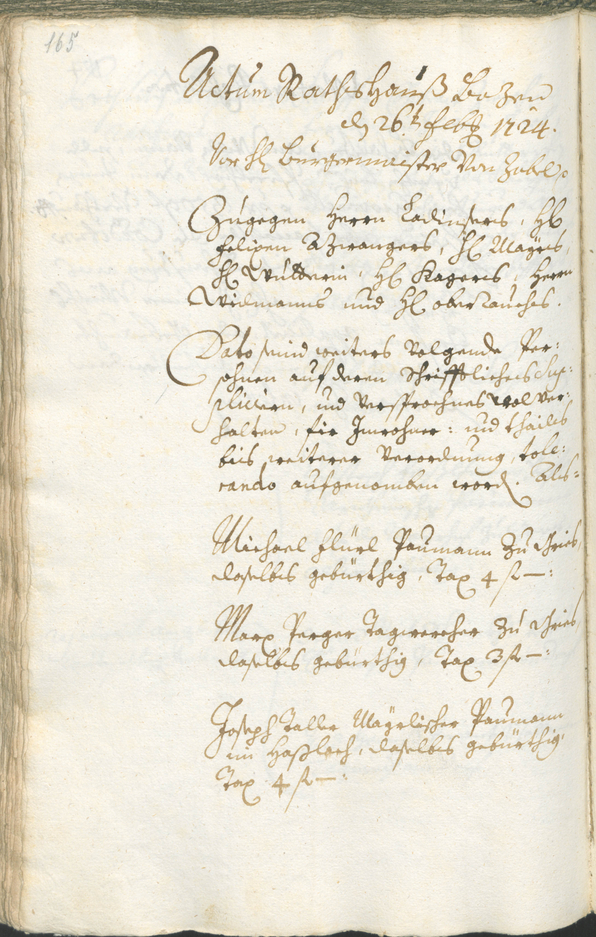 165
Actum Rathshauß Bozen
d. 26.t Feb. 1724.
Vor Hl Burgermaister Von Zobel.
Zugegen Herrn Ladinsers, Hl
Atzwangers, Hl Mayrs,
Hl Hl Kagerer, Herrn
Widmanns und Hl oberrauchs.
Dato seind weiters Volgende Per:
sohnen auf deren schrifftliches Sup:
pliciern, und versprochnes wol ver:
halten, fir Inwohner: und thails
bis weiterer Verordnung, tole:
rando aufgenomben word. Als:
Michael Paumann zu Gries,
daselbs gebürthig, Tax 4 f —:
Marx Perger Tagwercher zu Gries
daselbs gebürthig, Tax 3 f —:
Joseph Mayrlischer Paumann
im Haßlach, daselbs gebürthig.
Tax 4 f —: